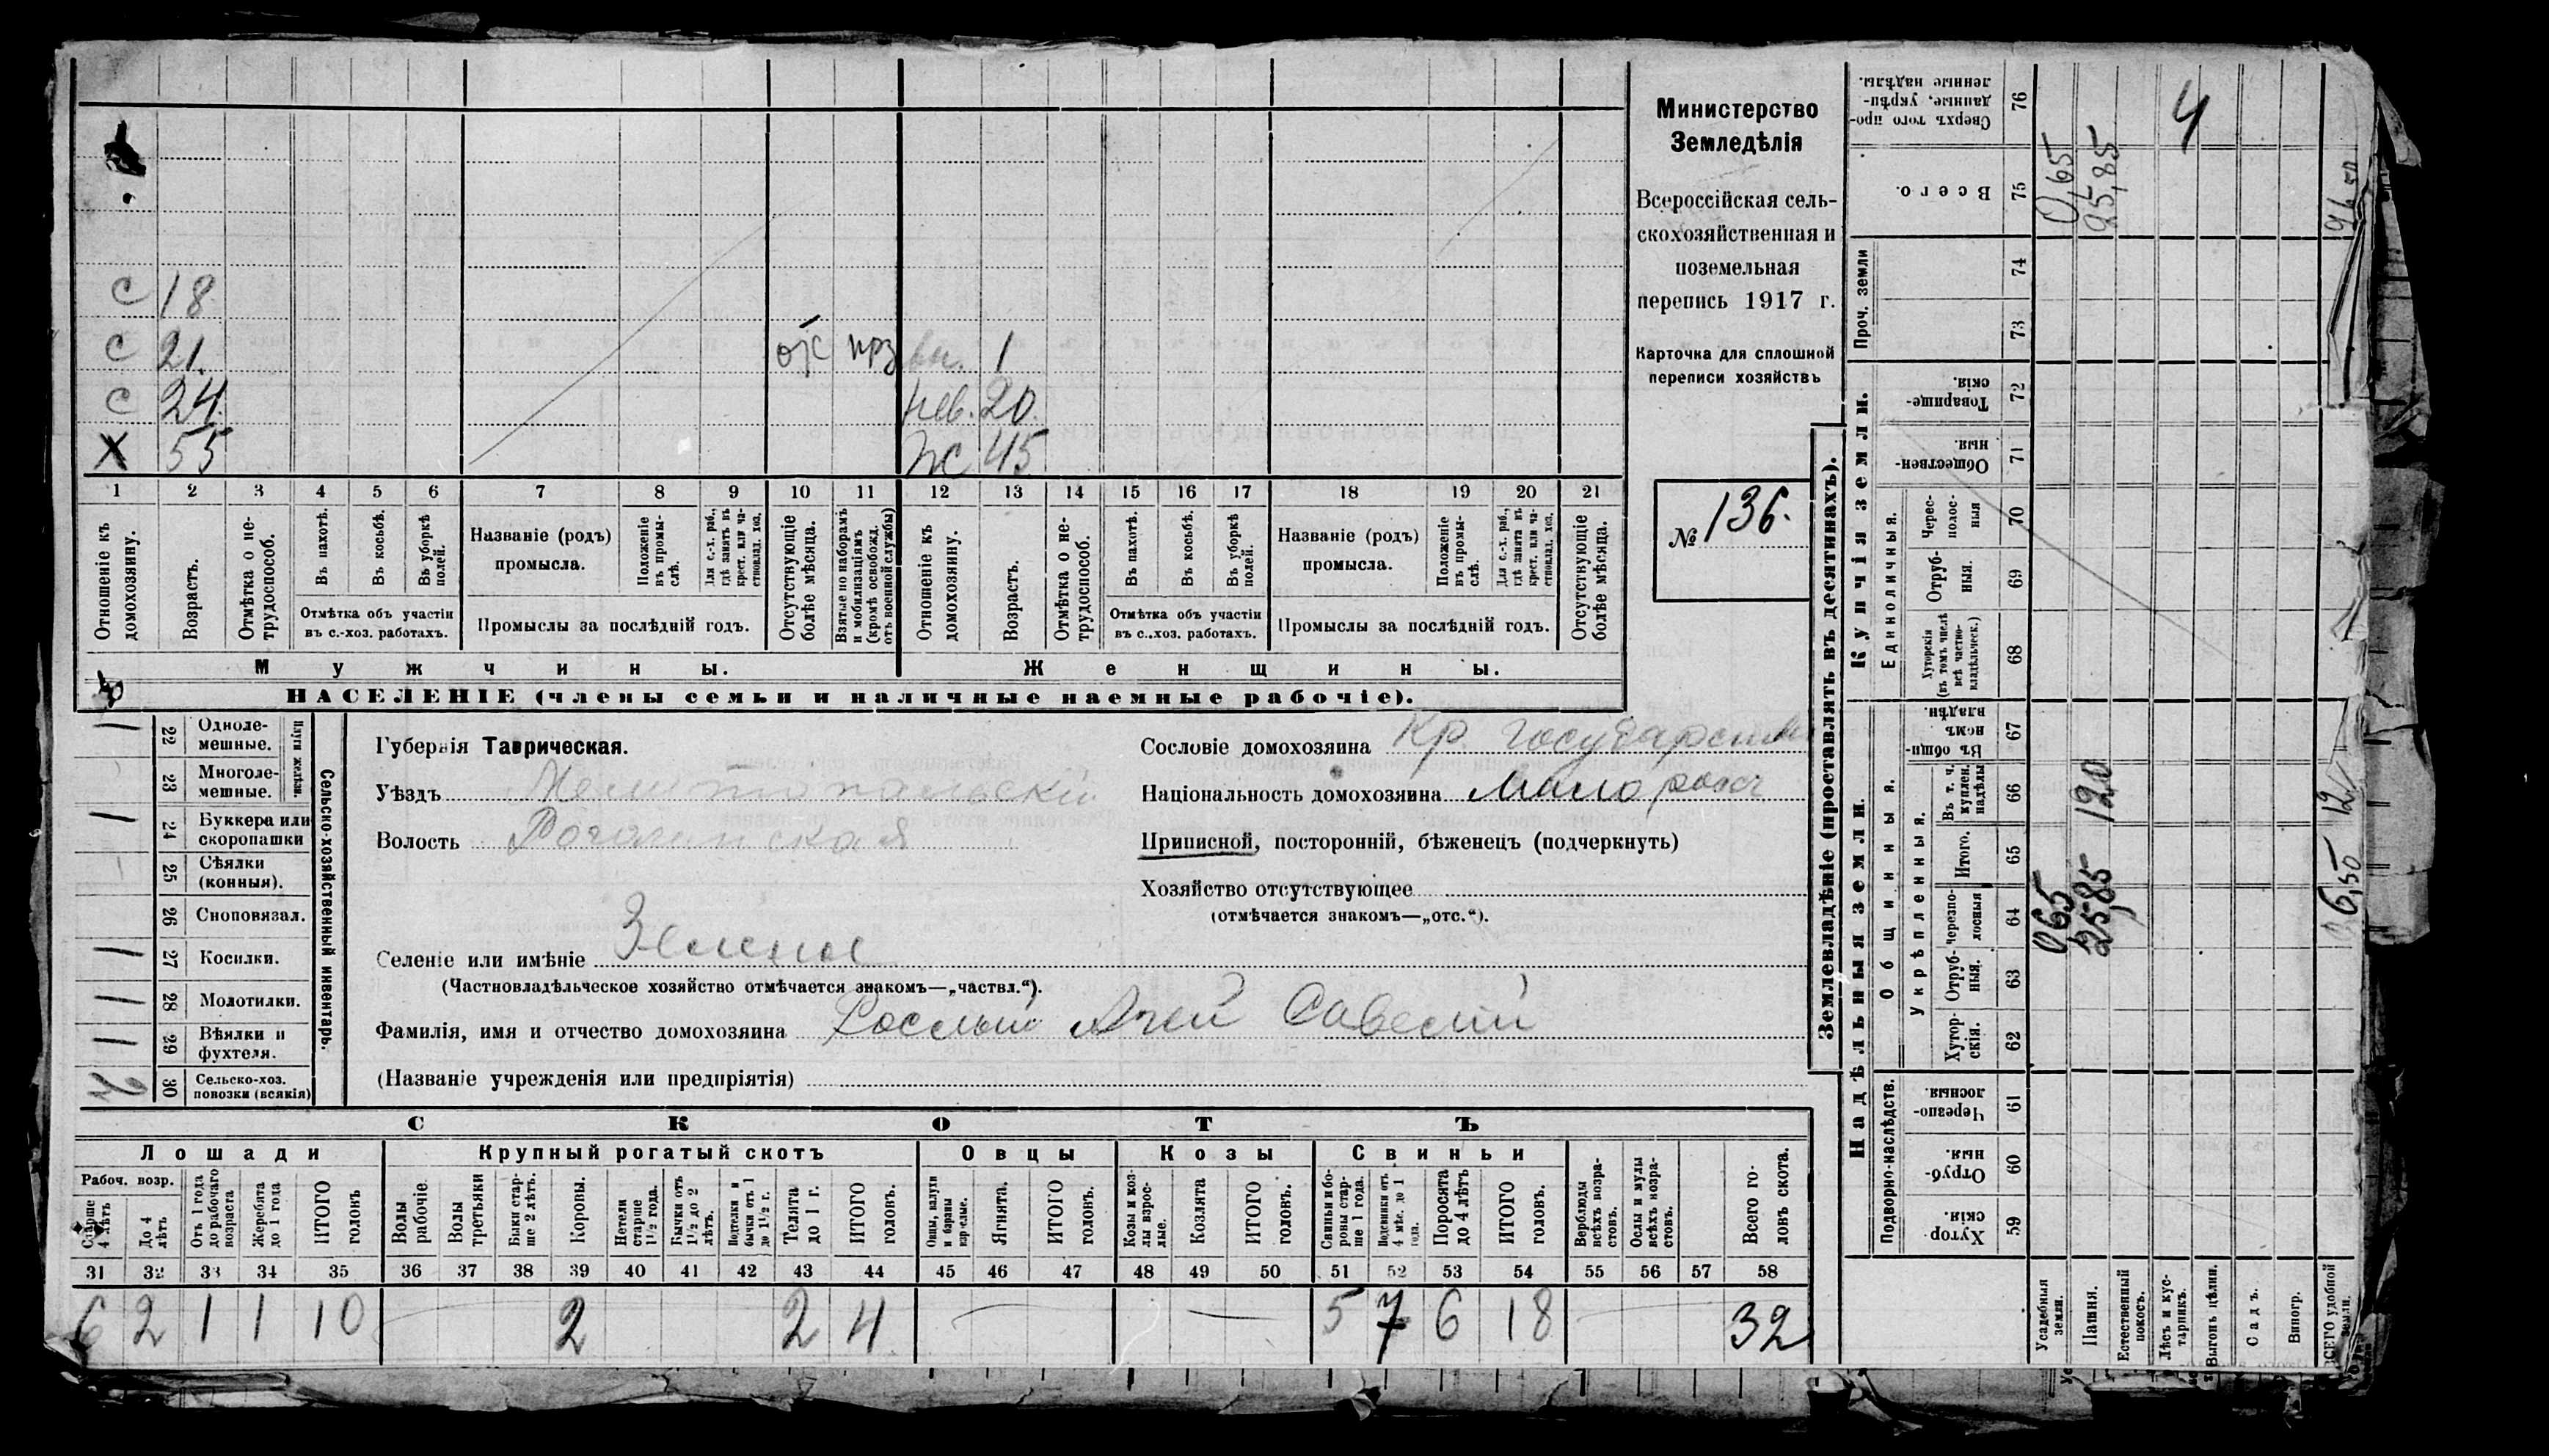 Министерство
Земледѣлія
Всероссійская сель-
скохозяйственная и
поземельная
перепись 1917 г.
Карточка для сплошной
переписи хозяйствъ
№ 136.
с 18
с 21. отс прз вн. 1
с 24. нев. 20.
Х 55 жс 45
1 2 3 4 5 6 7 8 9 10 11 12 13 14 15 16 17 18 19 20 21
Отношеніе къ домохозяину.
Возрастъ.
Отмѣтка о не-трудоспособ.
Въ пахотѣ.
Въ косьбѣ.
Въ уборкѣ полей.
Отмѣтка объ участіи
въ с.-хоз. работахъ.
Названіе (родъ)
промысла.
Положеніе въ промы-слѣ.
Для с.-х. раб., гдѣ занятъ въ крест. или ча-стновлад. хоз.
Промыслы за послѣдній годъ.
Отсутствующіе болѣе мѣсяца.
Взятые по наборамъ и мобилизаціямъ (кромѣ освобожд. отъ военной службы)
Отношеніе къ домохозяину.
Возрастъ.
Отмѣтка о не-трудоспособ.
Въ пахотѣ.
Въ косьбѣ.
Въ уборкѣ полей.
Отмѣтка объ участіи
въ с.-хоз. работахъ.
Названіе (родъ)
промысла.
Положеніе въ промы-слѣ.
Для с.-х. раб., гдѣ занята въ крест. или ча-стновлад. хоз.
Промыслы за послѣдній годъ.
Отсутствующіе болѣе мѣсяца.
Мужчины. Женщины.
НАСЕЛЕНІЕ (члены семьи и наличные наемные рабочіе).
Сельско-хозяйственный инвентарь.
1 22 Одноле-мешные.
23 Многоле-мешные.
1 24 Буккера или скоропашки
25 Сѣялки (конныя).
26 Сноповязал.
1 27 Косилки.
1 28 Молотилки.
1 29 Вѣялки и фухтеля.
2 30 Сельско-хоз. повозки (всякія)
Губернія Таврическая.
Уѣздъ Мелитопольскій
Волость Рогачинская
Селеніе или имѣніе Зеленое
(Частновладѣльческое хозяйство отмѣчается знакомъ—„частвл.“).
Фамилія, имя и отчество домохозяина Савелій
(Названіе учрежденія или предпріятія)
Сословіе домохозяина Кр. государств
Національность домохозяина Малоросс
Приписной, посторонній, бѣженецъ (подчеркнуть)
Хозяйство отсутствующее
(отмѣчается знакомъ—„отс.“).
СКОТЪ
Лошади Крупный рогатый скотъ Овцы Козы Свиньи
Рабоч. возр.
Старше 4 лѣтъ
До 4 лѣтъ
Отъ 1 года до рабочаго возраста
Жеребята до 1 года
ИТОГО головъ
Волы рабочіе.
Волы третьяки
Быки стар-ше 2 лѣтъ.
Коровы.
Нетели старше 1½ года.
Бычки отъ 1½ до 2 лѣтъ.
Подтелки и бычки отъ 1 до 1½ г.
Телята до 1 г.
ИТОГО головъ.
Овцы, валухи и бараны взрослые.
Ягнята.
ИТОГО головъ.
Козы и коз-лы взрос-лые.
Козлята
ИТОГО головъ.
Свиньи и бо-ровы стар-ше 1 года.
Подсвинки отъ 4 мѣс. до 1 года.
Поросята до 4 лѣтъ
ИТОГО головъ.
Верблюды всѣхъ возра-стовъ.
Ослы и мулы всѣхъ возра-стовъ.
Всего го-ловъ скота.
31 32 33 34 35 36 37 38 39 40 41 42 43 44 45 46 47 48 49 50 51 52 53 54 55 56 57 58
6 2 1 1 10 — 2 2 4 — — 5 7 6 18 — 32
Землевладѣніе (проставлять въ десятинахъ).
Сверхъ того про-данные, укрѣп-ленные надѣлы. 76
Всего. 75
Проч. земли 74 73
Купчія земли.
Товарище-скія. 72
Обществен-ныя. 71
Единоличныя.
Черес-полос-ныя 70
Отруб-ныя. 69
Хуторскія (въ томъ числѣ всѣ частно-владѣльческ.) 68
Надѣльныя земли.
Общинныя.
Въ общи-нномъ владѣн. 67
Укрѣпленныя.
Въ т. ч. куплен. надѣлы 66
Итого. 65
Черезпо-лосныя 64
Отруб-ныя. 63
Хутор-скія. 62
Подворно-наслѣдств.
Черезпо-лосныя 61
Отруб-ныя. 60
Хутор-скія. 59
Усадебныя земли. 065 0,65
Пашня. 25,85 120 25,85
Естественный покосъ.
Лѣсъ и кус-тарникъ. 4
Выгонъ цѣлин.
Садъ.
Виногр.
ВСЕГО удобной земли. 26,50 12